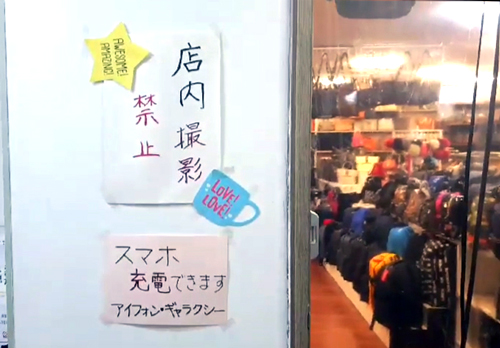 AWESOME!
AMAZING!
店内撮影
禁止
LOVE!
LOVE!
スマホ
充電できます
アイフォン・ギャラクシー